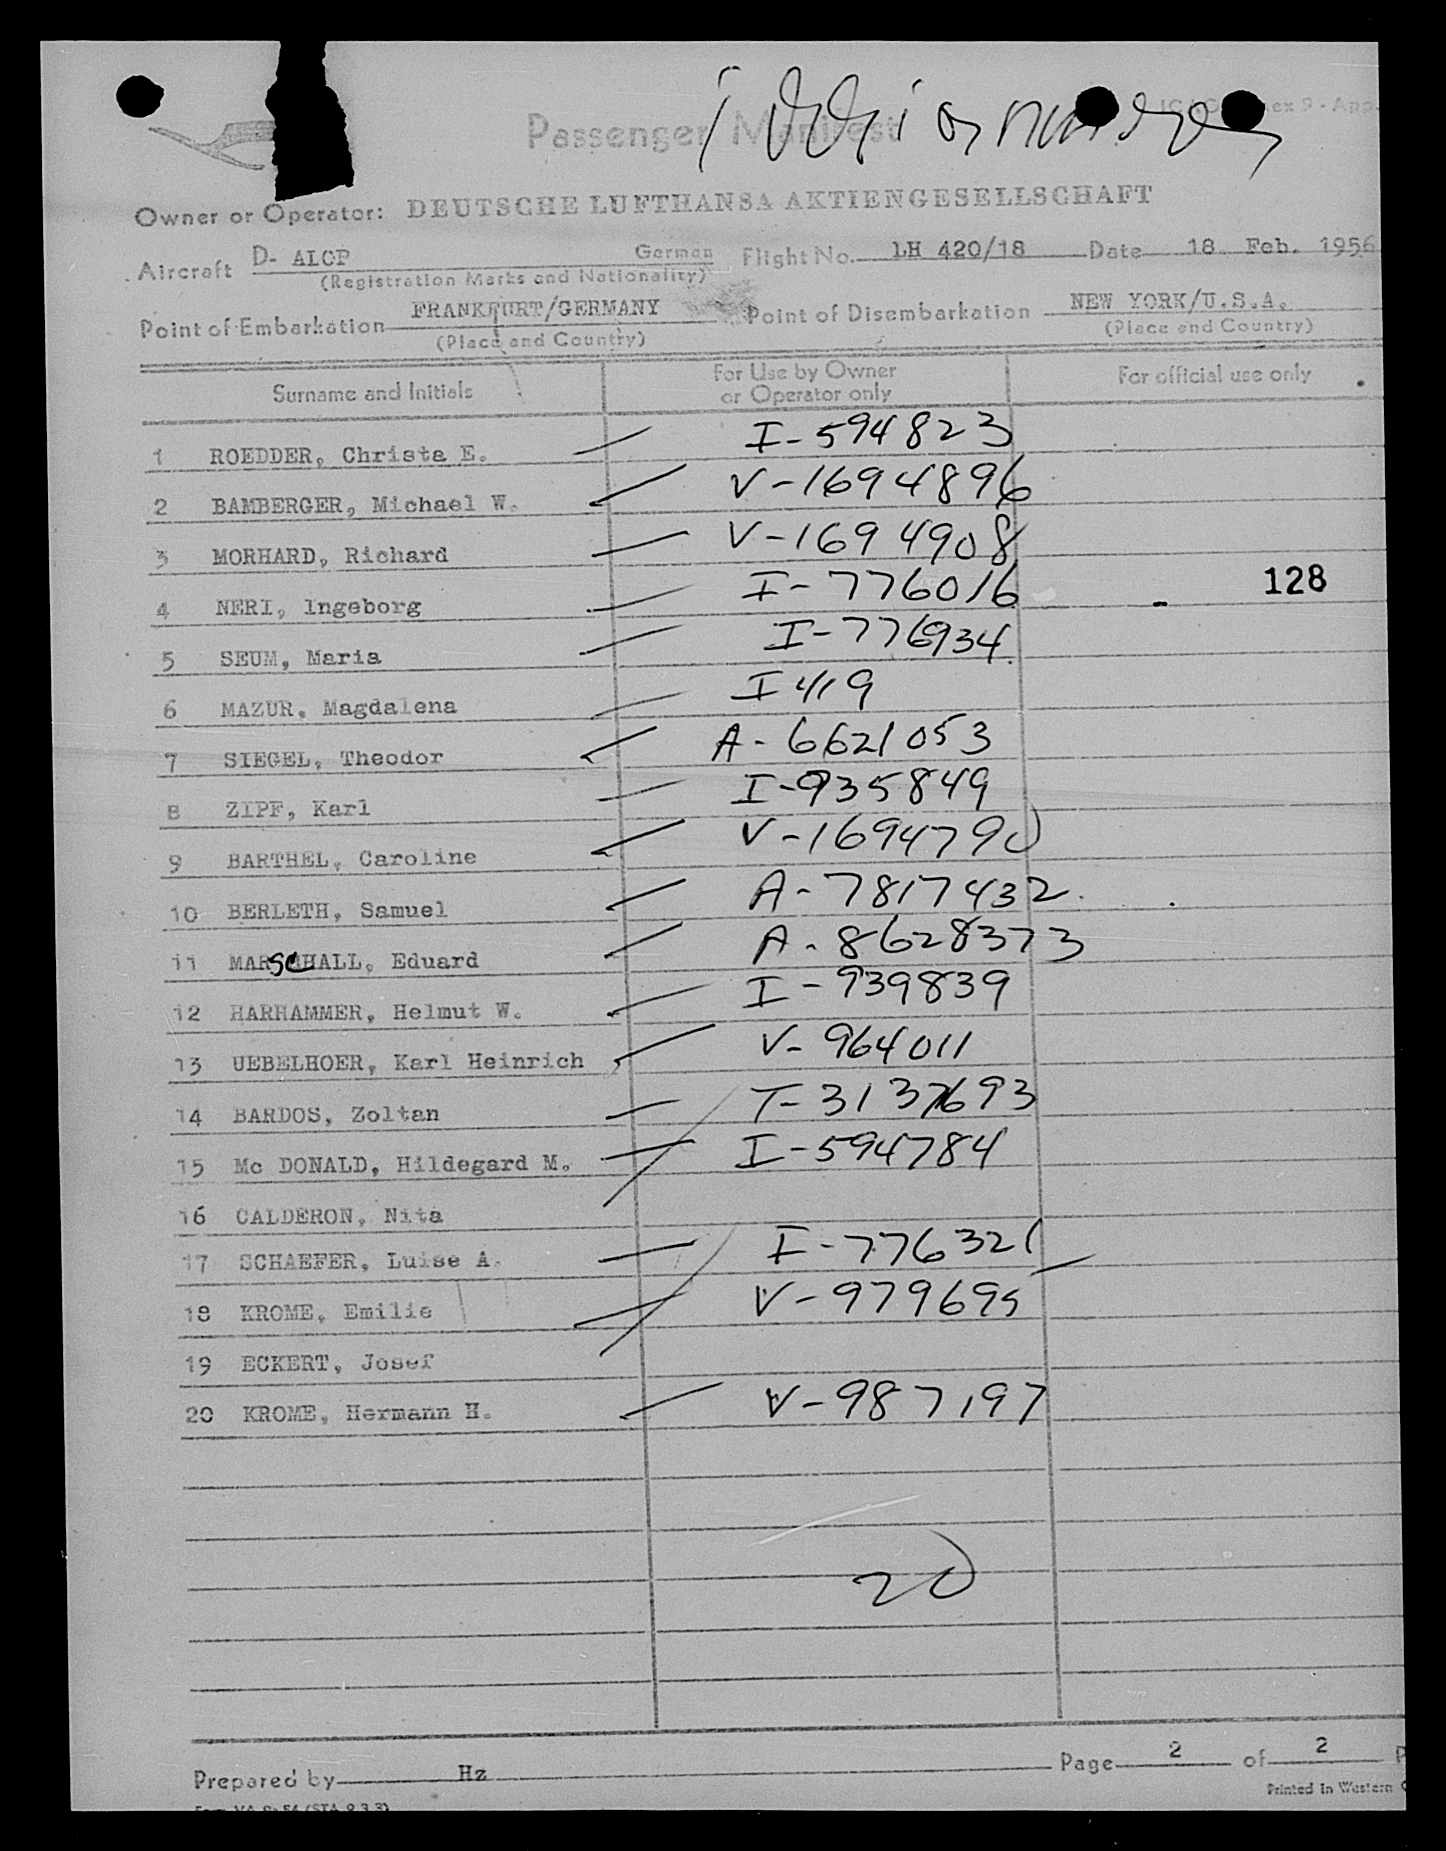 Passenger Manifest
Owner or Operator: DEUTSCHE LUFTHANSA AKTIENGESELLSCHAFT
Aircraft D- ALOP German Flight No. LH 420/18 Date 18 Feb. 1956
(Registration Marks and Nationality)
Point of Embarkation FRANKFURT/GERMANY Point of Disembarkation NEW YORK/U.S.A.
(Place and Country) (Place and Country)
Surname and Initials For Use by Owner or Operator only For official use only
1 ROEDDER, Christa E. I-594823
2 BAMBERGER, Michael W. V-1694896
3 MORHARD, Richard V-1694908
4 NERI, Ingeborg I-776016 128
5 SEUM, Maria I-776934
6 MAZUR, Magdalena I 419
7 SIEGEL, Theodor A-6621053
8 ZIPF, Karl I-935849
9 BARTHEL, Caroline V-1694790
10 BERLETH, Samuel A-7817432
11 MARSCHALL, Eduard A-8628373
12 HARHAMMER, Helmut W. I-939839
13 UEBELHOER, Karl Heinrich V-964011
14 BARDOS, Zoltan T-3137693
15 Mc DONALD, Hildegard M. I-594784
16 CALDERON, Nita
17 SCHAEFER, Luise A. I-776321
18 KROME, Emilie V-979695
19 ECKERT, Josef
20 KROME, Hermann H. V-987197
20
Prepared by Hz Page 2 of 2
Printed in Western